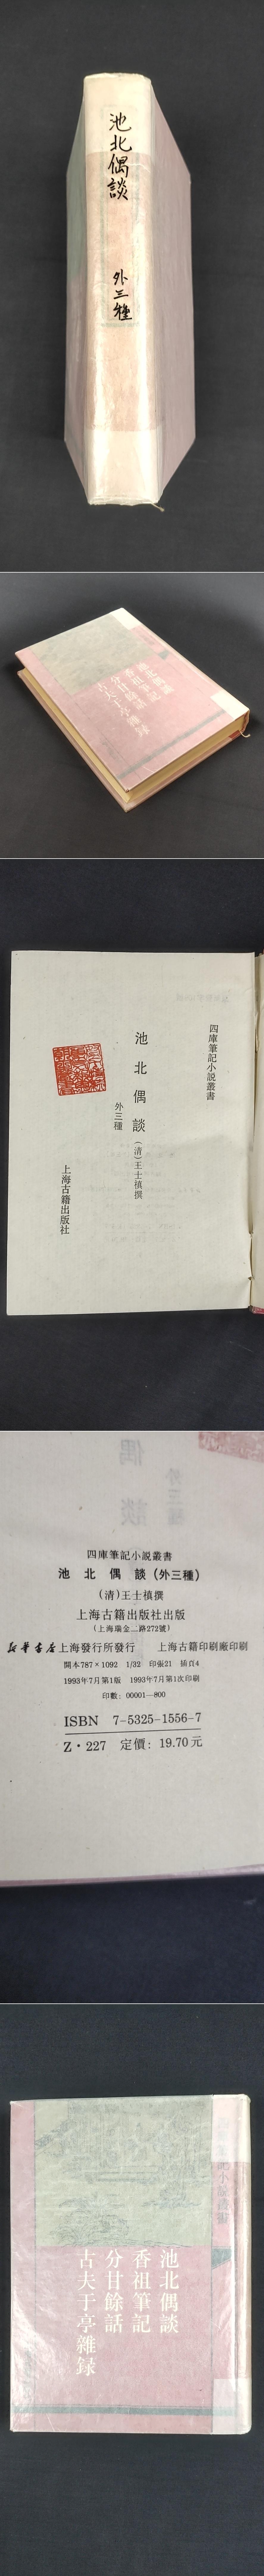 池北偶談
外三種
池北偶談
香祖筆記
分甘餘話
古夫于亭雜録
四庫筆記小説叢書
池北偶談
(清)王士禛撰
外三種
上海古籍出版社
四庫筆記小説叢書
池北偶談(外三種)
(清)王士禛撰
上海古籍出版社出版
(上海瑞金二路272號)
新華書店上海發行所發行 上海古籍印刷廠印刷
開本787×1092 1/32 印張21 插頁4
1993年7月第1版 1993年7月第1次印刷
印數:00001—800
ISBN 7-5325-1556-7
Z·227 定價:19.70元
池北偶談
香祖筆記
分甘餘話
古夫于亭雜録